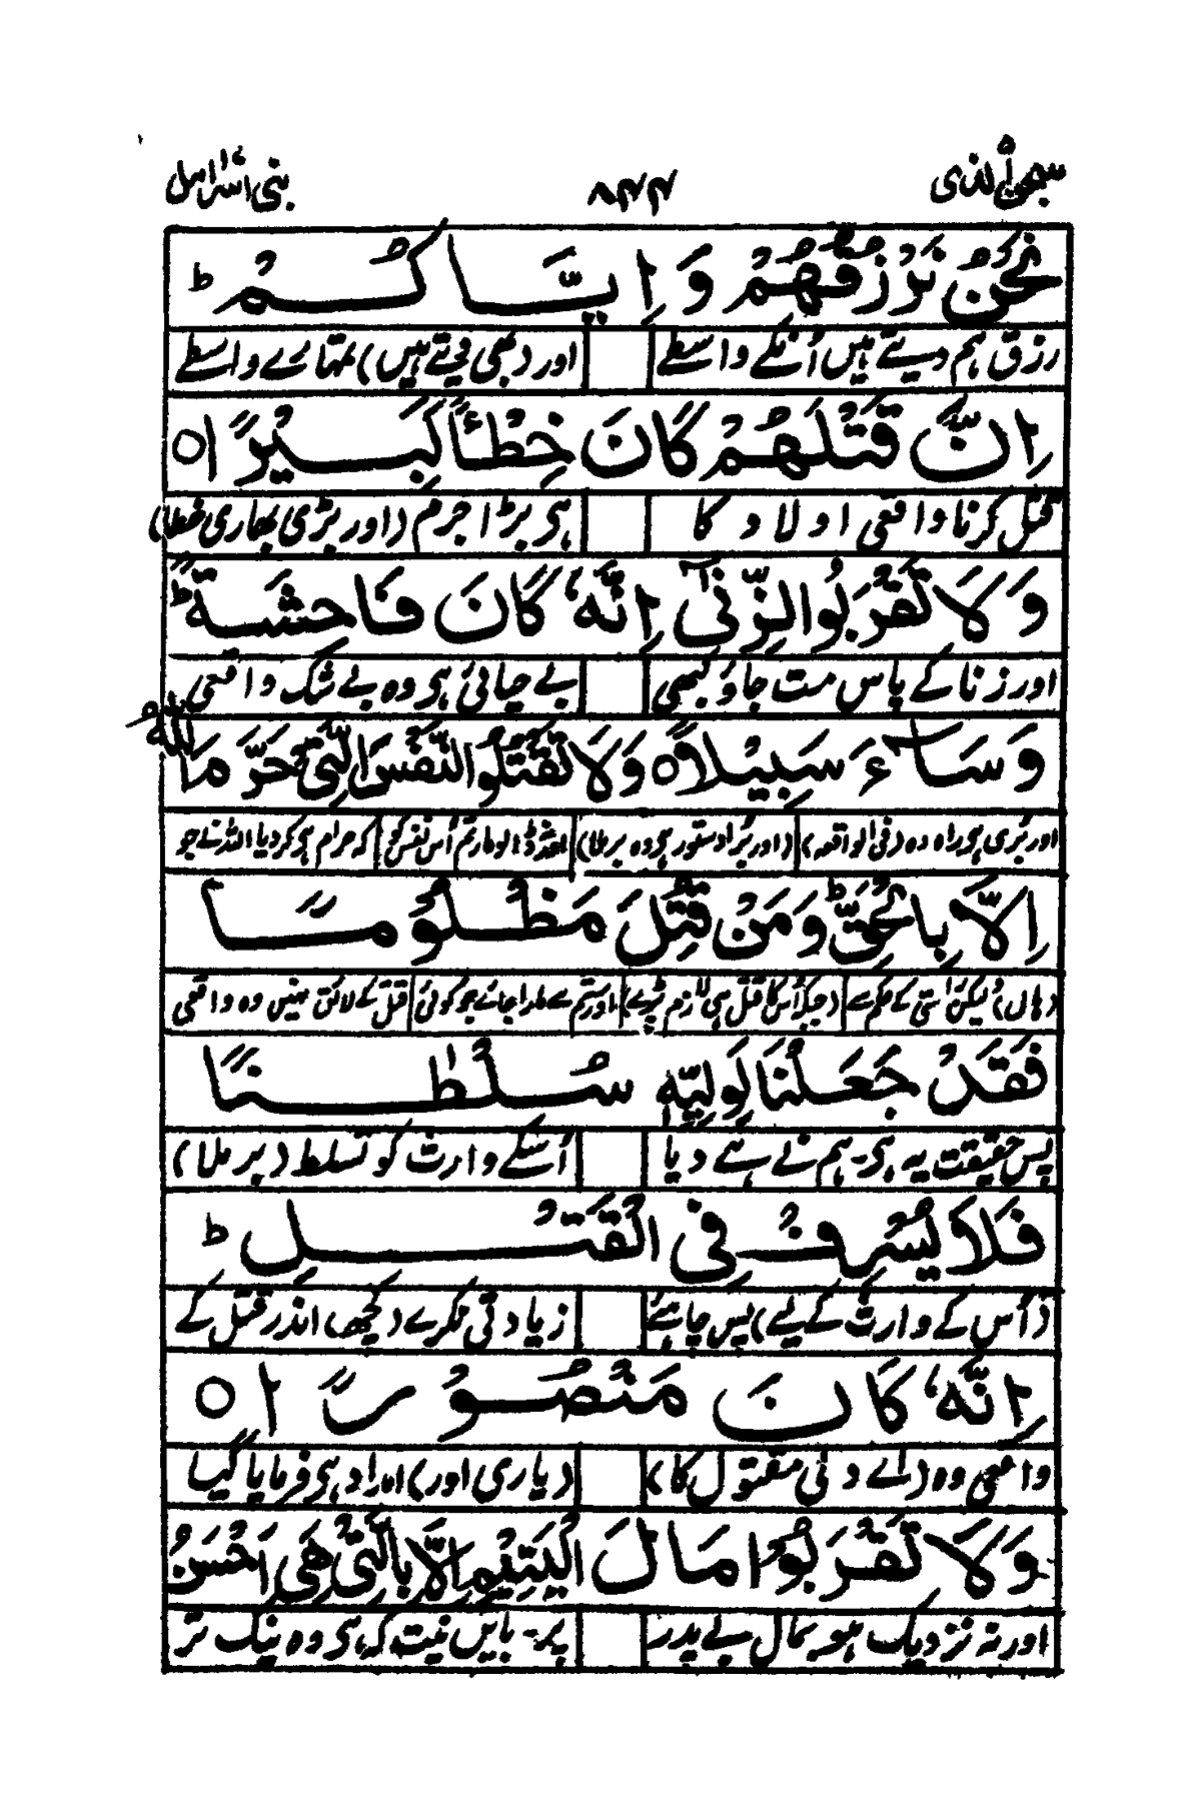 سبحن الذی ۸۴۴ بنی اسرائیل
نَحْنُ نَرْزُقُهُمْ وَاِیَّاكُمْ ؕ
رزق ہم دیتے ہیں اُنکے واسطے اور (بھی دیتے ہیں) تمہارے واسطے
اِنَّ قَتْلَهُمْ كَانَ خِطْاً كَبِیْرًا ○
قتل کرنا واقعی اولاد کا ہی بڑا جرم (اور بڑی بھاری خطا)
وَلَا تَقْرَبُوا الزِّنٰۤی اِنَّهٗ كَانَ فَاحِشَةً ؕ
اور زنا کے پاس مت جاؤ کبھی بے حیائی ہی وہ بے شک واقعی
وَسَآءَ سَبِیْلًا ○ وَلَا تَقْتُلُوا النَّفْسَ الَّتِیْ حَرَّمَ اللّٰهُ
اور بُری ہی راہ وہ (فی الواقعہ) (اور بُرا دستور ہی وہ برملا) مار تم اُس نفس کو کہ حرام ہی کر دیا اللہ نے جو
اِلَّا بِالْحَقِّ ؕ وَمَنْ قُتِلَ مَظْلُوْمًا
(ہاں) لیکن کے حکم سے (جبکہ اُس کا قتل ہی لازم پڑے) اور ستم سے مارا جائے جو کوئی قتل کے لائق نہیں وہ واقعی
فَقَدْ جَعَلْنَا لِوَلِیِّهٖ سُلْطٰنًا
پس حقیقت یہ ہی۔ ہم نے ہے دیا اُسکے وارث کو تسلط (برملا)
فَلَا یُسْرِفْ فِّی الْقَتْلِ ؕ
(اُس کے وارث کے لیے) پس چاہئے زیادتی نکرے (کچھ) اندر قتل کے
اِنَّهٗ كَانَ مَنْصُوْرًا ○
واقعی وہ (اے مقتول کا) (یاری اور) امداد ہی فرمایا گیا
وَلَا تَقْرَبُوْا مَالَ الْیَتِیْمِ اِلَّا بِالَّتِیْ هِیَ اَحْسَنُ
اور نہ نزدیک ہو مال بے پدر پر۔ بایں نیت کہ ہی وہ نیک تر